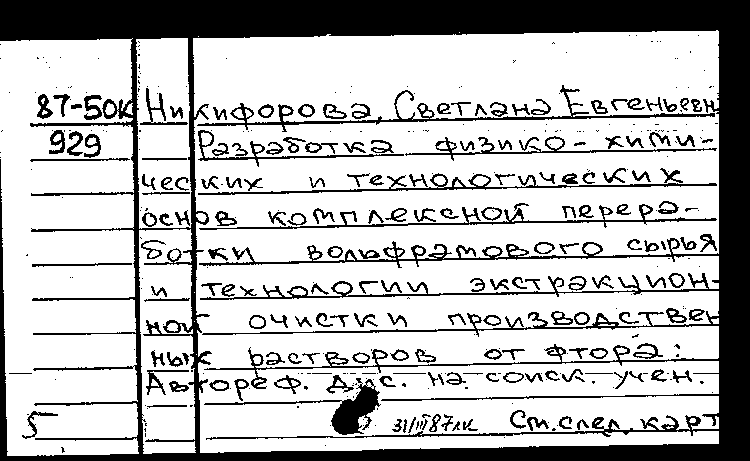 87-50к Никифорова, Светлана Евгеньевн
929 Разработка физико-хими-
ческих и технологических
основ комплексной перера-
ботки вольфрамового сырья
и технологии экстракцион-
ной очистки производствен
ных растворов от фтора:
Автореф. дис. на соиск. учен.
5 31/III87лк См. след. карт